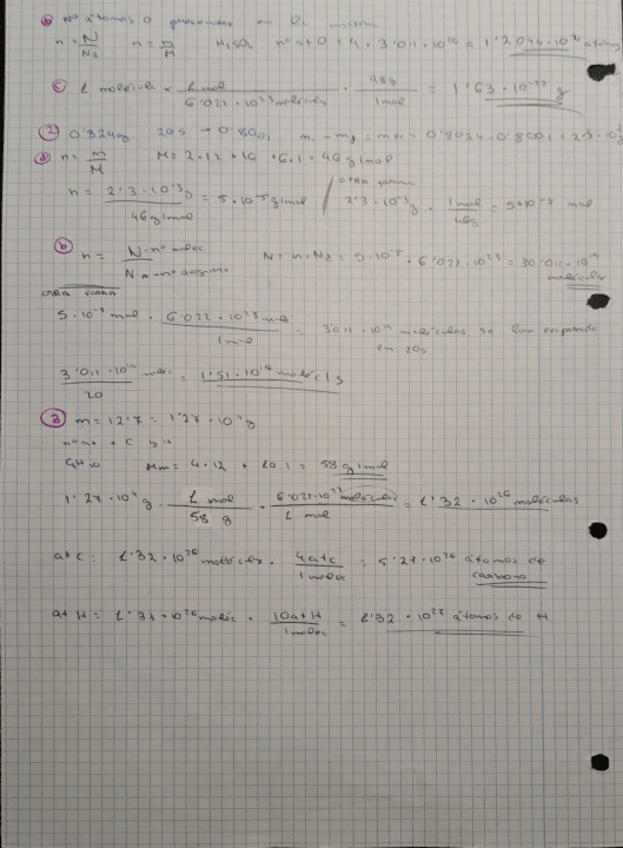 b) Nº átomos O presentes en la misma
n = N/NA n = m/M H2SO4 nº at O = 4 · 3'011 · = 1'2044 · átomos
c) 1 molécula × 1 mol / 6'022 · 10^23 moléculas · 98g / 1 mol = 1'63 · 10^-22 g
2) 20s → 0'8001 = 0'8024 - 0'8001 =
a) n = m/M M = 2·12 + 16 + 6·1 = 46 g/mol
n = 2'3 · 10^-3 g / 46 g/mol = 5 · 10^-5 g/mol / otra forma 2'3 · 10^-3 g · 1 mol / 46g = 5·10^-5 mol
b) n = N - nº molec / NA - nº N = n · NA = 5·10^-5 · 6'022 · 10^23 = 30'011 · 10^18 moléculas
otra forma
5 · 10^-5 mol · 6'022 · 10^23 / 1 mol = 3'011 · moléculas se han evaporado
en 20s
3'011 · / 20 = 1'51 · moléc / s
3) m = 12'7 = 1'27 · 10^4 g
nº at C y H
C4H10 Mm = 4·12 + 10·1 = 58 g/mol
1'27 · 10^4 g · 1 mol / 58 g · 6'022·10^23 moléculas / 1 mol = 1'32 · 10^26 moléculas
at C: 1'32 · 10^26 moléculas · 4 at C / 1 molec = 5'27 · 10^26 átomos de
carbono
at H = · 10^26 moléc · 10 at H / 1 molec = 1'32 · 10^27 átomos de H